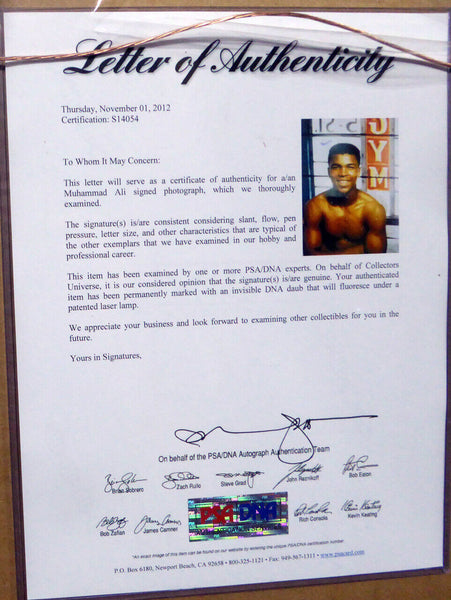 Letter of Authenticity
Thursday, November 01, 2012
Certification: S14054
GYM
To Whom It May Concern:
This letter will serve as a certificate of authenticity for a/an
Muhammad Ali signed photograph, which we thoroughly
examined.
The signature(s) is/are consistent considering slant, flow, pen
pressure, letter size, and other characteristics that are typical of
the other exemplars that we have examined in our hobby and
professional career.
This item has been examined by one or more PSA/DNA experts. On behalf of Collectors
Universe, it is our considered opinion that the signature(s) is/are genuine. Your authenticated
item has been permanently marked with an invisible DNA daub that will fluoresce under a
patented laser lamp.
We appreciate your business and look forward to examining other collectibles for you in the
future.
Yours in Signatures,
On behalf of the PSA/DNA Autograph Authentication Team
Brian Sobrero
Zach Rullo
Steve Grad
John Reznikoff
Bob Eaton
Bob Zafian
James Camner
PSA/DNA
Rich Consola
Kevin Keating
"An exact image of this item can be found on our website by entering the unique PSA/DNA certification number."
P.O. Box 6180, Newport Beach, CA 92658 • 800-325-1121 • Fax: 949-567-1311 • www.psacard.com